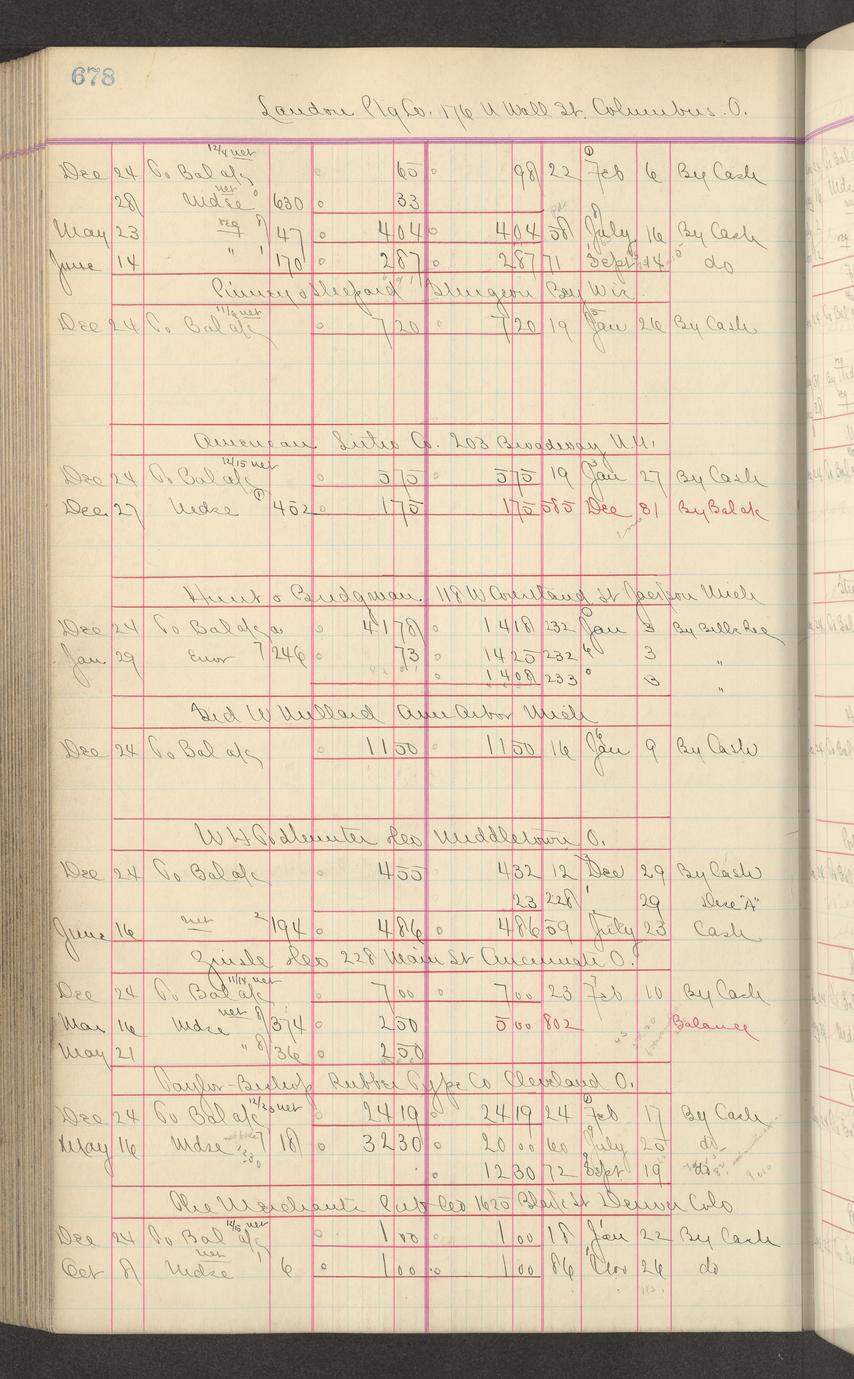 678
Landon Ptg Co. 176 N Wall St. Columbus. O.
12/4 net
Dec 24 To Bal a/c 65 98 22 Feb 6 By Cash
net
28 Mdse 630 33
May 23 reg 8 47 4 04 4 04 58 July 16 By Cash
June 14 " 1 170 2 87 2 87 71 Sept 14 do
Pinney & Shepard Sturgeon Bay Wis
11/6 net
Dec 24 To Bal a/c 7 20 7 20 19 Jan 26 By Cash
American Litho Co. 203 Broadway N.Y.
12/15 net
Dec 24 To Bal a/c 5 75 5 75 19 Jan 27 By Cash
Dec 27 Mdse 452 1 75 1 75 585 Dec 31 By Bal a/c
Hunt & Bridgman 118 W Courtland St Jackson Mich
Dec 24 To Bal a/c 41 78 14 18 232 Jan 3 By Bills Rec
Jan 29 Error 7 246 73 14 25 232 " 3 "
14 08 233 " 3 "
Sid W Millard Ann Arbor Mich
Dec 24 To Bal a/c 11 50 11 50 16 Jan 9 By Cash
W H Todhunter Middletown O.
Dec 24 To Bal a/c 4 55 4 32 12 Dec 29 By Cash
23 228 " 29 Disc "A"
June 16 net 2 194 4 86 4 86 59 July 23 Cash
Zinsle 228 Main St Cincinnati O.
11/14 net
Dec 24 To Bal a/c 7 00 7 00 23 Feb 10 By Cash
Mar 16 Mdse net 8 374 2 50 5 00 802 Balance
May 21 " 8 36 2 50
Taylor-Bishop Rubber Type Co Cleveland O.
12/20 net
Dec 24 To Bal a/c 24 19 24 19 24 Feb 17 By Cash
May 16 Mdse 7 18 32 30 20 00 60 July 25 do
12 30 72 Sept 19 do
The Merchants Pub Co 1625 Blake St Denver Colo
12/15 net
Dec 24 To Bal a/c 1 00 1 00 18 Jan 22 By Cash
net
Oct 8 Mdse 1 6 1 00 1 00 86 Nov 26 do